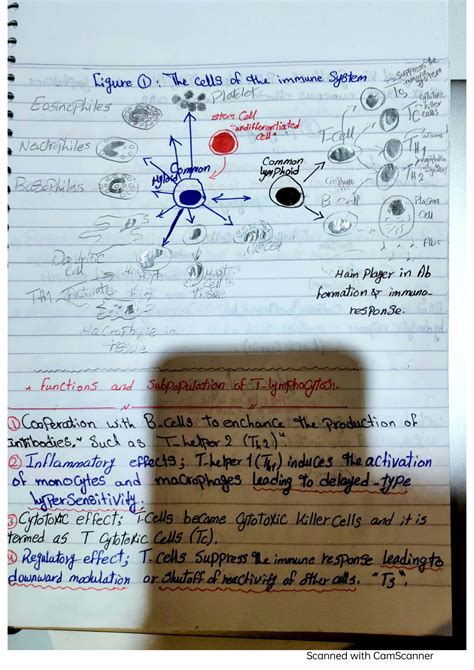 Figure ①: The cells of the immune System
Platelet
Eosinophiles
stem Cell
"undifferentiated
cell"
suppress the
immune system
Ts
cytotoxic
killer
cells
Tc
T cell
Neutrophiles
Common
Myloid
Common
lymphoid
TH1
TH2
Basophiles
B cell
Plasma
Cell
Abs
Dendritic
cell
Mast
tissue
TH1 activate
Macrophage in
tissue
Main Player in Ab
formation & immuno-
response.
Functions and Subpopulation of T-lymphocytes.
① Cooperation with B-cells to enchance the production of
intibodies." Such as T-helper 2 (Th2)"
② Inflammatory effects; T-helper 1 (TH1) induces the activation
of monocytes and macrophages leading to delayed-type
hyperSensitivity.
3 Cytotoxic effect; T-Cells became Cytotoxic Killer Cells and it is
termed as T Cytotoxic Cells (Tc).
4 Regulatory effect; T-Cells Suppress the immune response leading to
downward modulation or Shutoff of reactivity of other cells. "Ts".
Scanned with CamScanner